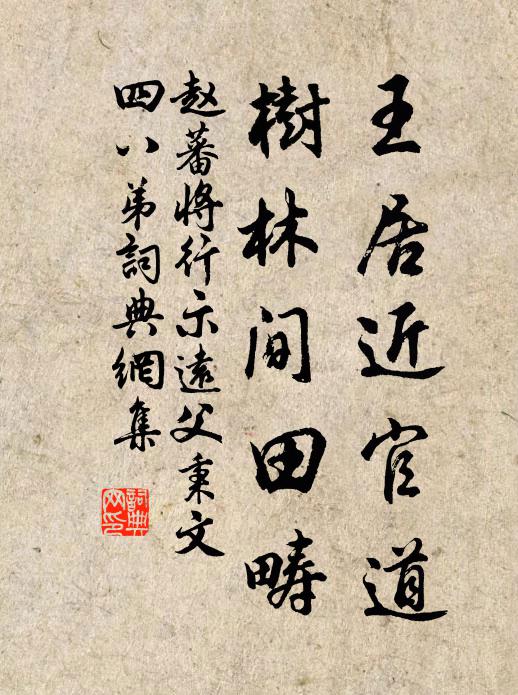 王居近官道
樹林間田疇
赵蕃將行示遠父秉文
四八弟詞典網集
詞典
网印